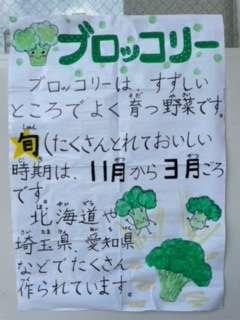 ブロッコリー
ブロッコリーは、すずしい
ところでよく育つ野菜です。
旬(たくさんとれておいしい
時期は、11月から3月ごろ
です。
北海道や
埼玉県、愛知県
などでたくさん
作られています。